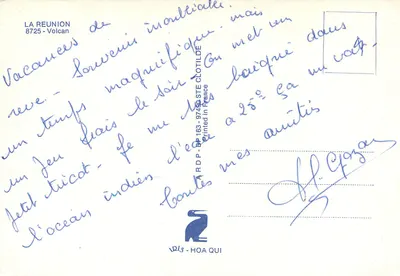 LA REUNION
8725 - Volcan
Vacances de
reve - Souvenir inoubliable.
un temps magnifique. mais
un peu frais le soir - On met un
petit tricot - Je me suis baigné dans
l'océan indien l'eau à 25° ça va
Toutes mes amitiés
STE CLOTILDE
Printed in France
HOA QUI